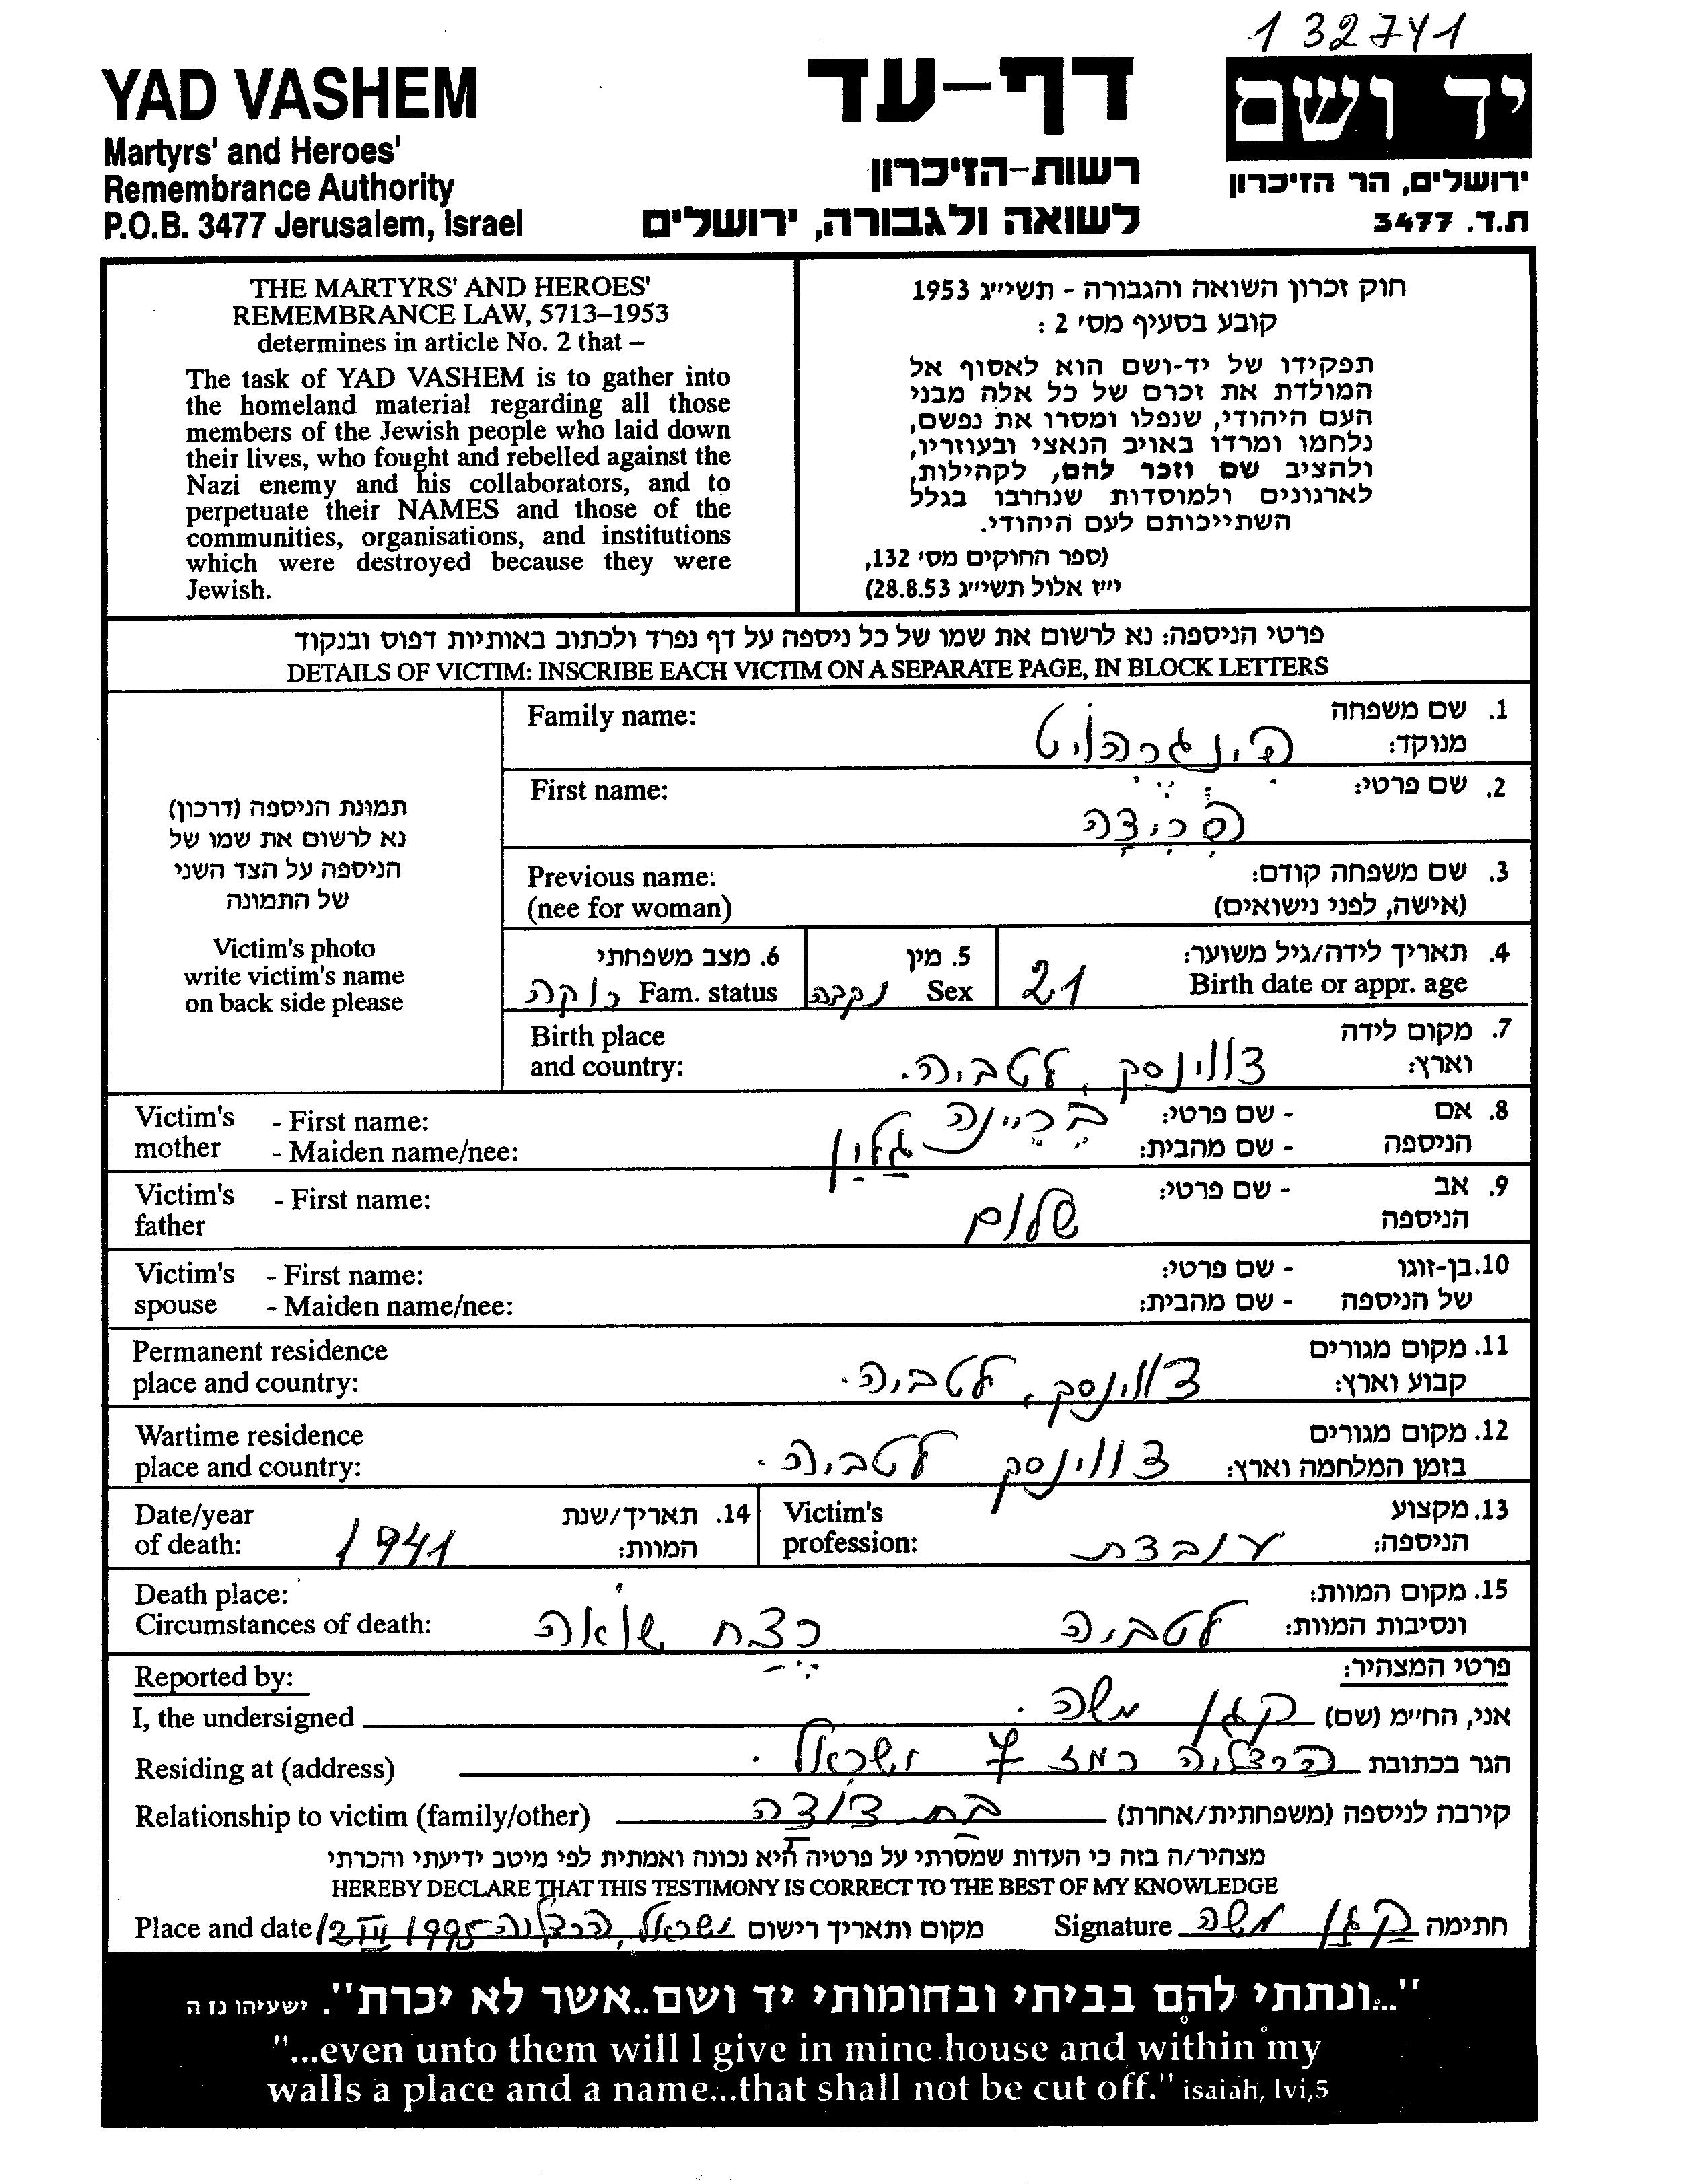 132741
YAD VASHEM
Martyrs' and Heroes'
Remembrance Authority
P.O.B. 3477 Jerusalem, Israel
דף-עד
רשות-הזיכרון
לשואה ולגבורה, ירושלים
יד ושם
ירושלים, הר הזיכרון
ת.ד. 3477
THE MARTYRS' AND HEROES'
REMEMBRANCE LAW, 5713–1953
determines in article No. 2 that –
The task of YAD VASHEM is to gather into
the homeland material regarding all those
members of the Jewish people who laid down
their lives, who fought and rebelled against the
Nazi enemy and his collaborators, and to
perpetuate their NAMES and those of the
communities, organisations, and institutions
which were destroyed because they were
Jewish.
חוק זכרון השואה והגבורה - תשי״ג 1953
קובע בסעיף מס׳ 2 :
תפקידו של יד-ושם הוא לאסוף אל
המולדת את זכרם של כל אלה מבני
העם היהודי, שנפלו ומסרו את נפשם,
נלחמו ומרדו באויב הנאצי ובעוזריו,
ולהציב שם וזכר להם, לקהילות,
לארגונים ולמוסדות שנחרבו בגלל
השתייכותם לעם היהודי.
(ספר החוקים מס׳ 132,
י״ז אלול תשי״ג 28.8.53)
פרטי הניספה: נא לרשום את שמו של כל ניספה על דף נפרד ולכתוב באותיות דפוס ובנקוד
DETAILS OF VICTIM: INSCRIBE EACH VICTIM ON A SEPARATE PAGE, IN BLOCK LETTERS
תמונת הניספה (דרכון)
נא לרשום את שמו של
הניספה על הצד השני
של התמונה
Victim's photo
write victim's name
on back side please
Family name:
1. שם משפחה
מנוקד:
First name:
2. שם פרטי:
פרידה
Previous name:
(nee for woman)
3. שם משפחה קודם:
(אישה, לפני נישואים)
4. תאריך לידה/גיל משוער:
Birth date or appr. age
21
5. מין
Sex נקבה
6. מצב משפחתי
Fam. status רווקה
Birth place
and country:
7. מקום לידה
וארץ:
דווינסק, לטביה.
Victim's
mother
- First name:
- Maiden name/nee:
8. אם
הניספה
- שם פרטי: בריינה
- שם מהבית: גלין
Victim's
father
- First name:
9. אב
הניספה
- שם פרטי:
שלום
Victim's
spouse
- First name:
- Maiden name/nee:
10. בן-זוגו
של הניספה
- שם פרטי:
- שם מהבית:
Permanent residence
place and country:
11. מקום מגורים
קבוע וארץ:
דווינסק, לטביה.
Wartime residence
place and country:
12. מקום מגורים
בזמן המלחמה וארץ:
דווינסק לטביה.
Date/year
of death:
14. תאריך/שנת
המוות:
1941
Victim's
profession:
13. מקצוע
הניספה:
עובדת
Death place:
Circumstances of death:
15. מקום המוות:
ונסיבות המוות:
לטביה רצח שואה
Reported by:
פרטי המצהיר:
I, the undersigned
אני, החי״מ (שם) קגן משה.
Residing at (address)
הגר בכתובת הרצליה רמז 7 ישראל.
Relationship to victim (family/other)
קירבה לניספה (משפחתית/אחרת) בת דודה
מצהיר/ה בזה כי העדות שמסרתי על פרטיה היא נכונה ואמתית לפי מיטב ידיעתי והכרתי
HEREBY DECLARE THAT THIS TESTIMONY IS CORRECT TO THE BEST OF MY KNOWLEDGE
Place and date 12 III 1995 מקום ותאריך רישום ישראל, הרצליה
Signature חתימה קגן משה
"...ונתתי להם בביתי ובחומותי יד ושם..אשר לא יכרת". ישעיהו נו ה
"...even unto them will I give in mine house and within my
walls a place and a name...that shall not be cut off." isaiah, lvi,5